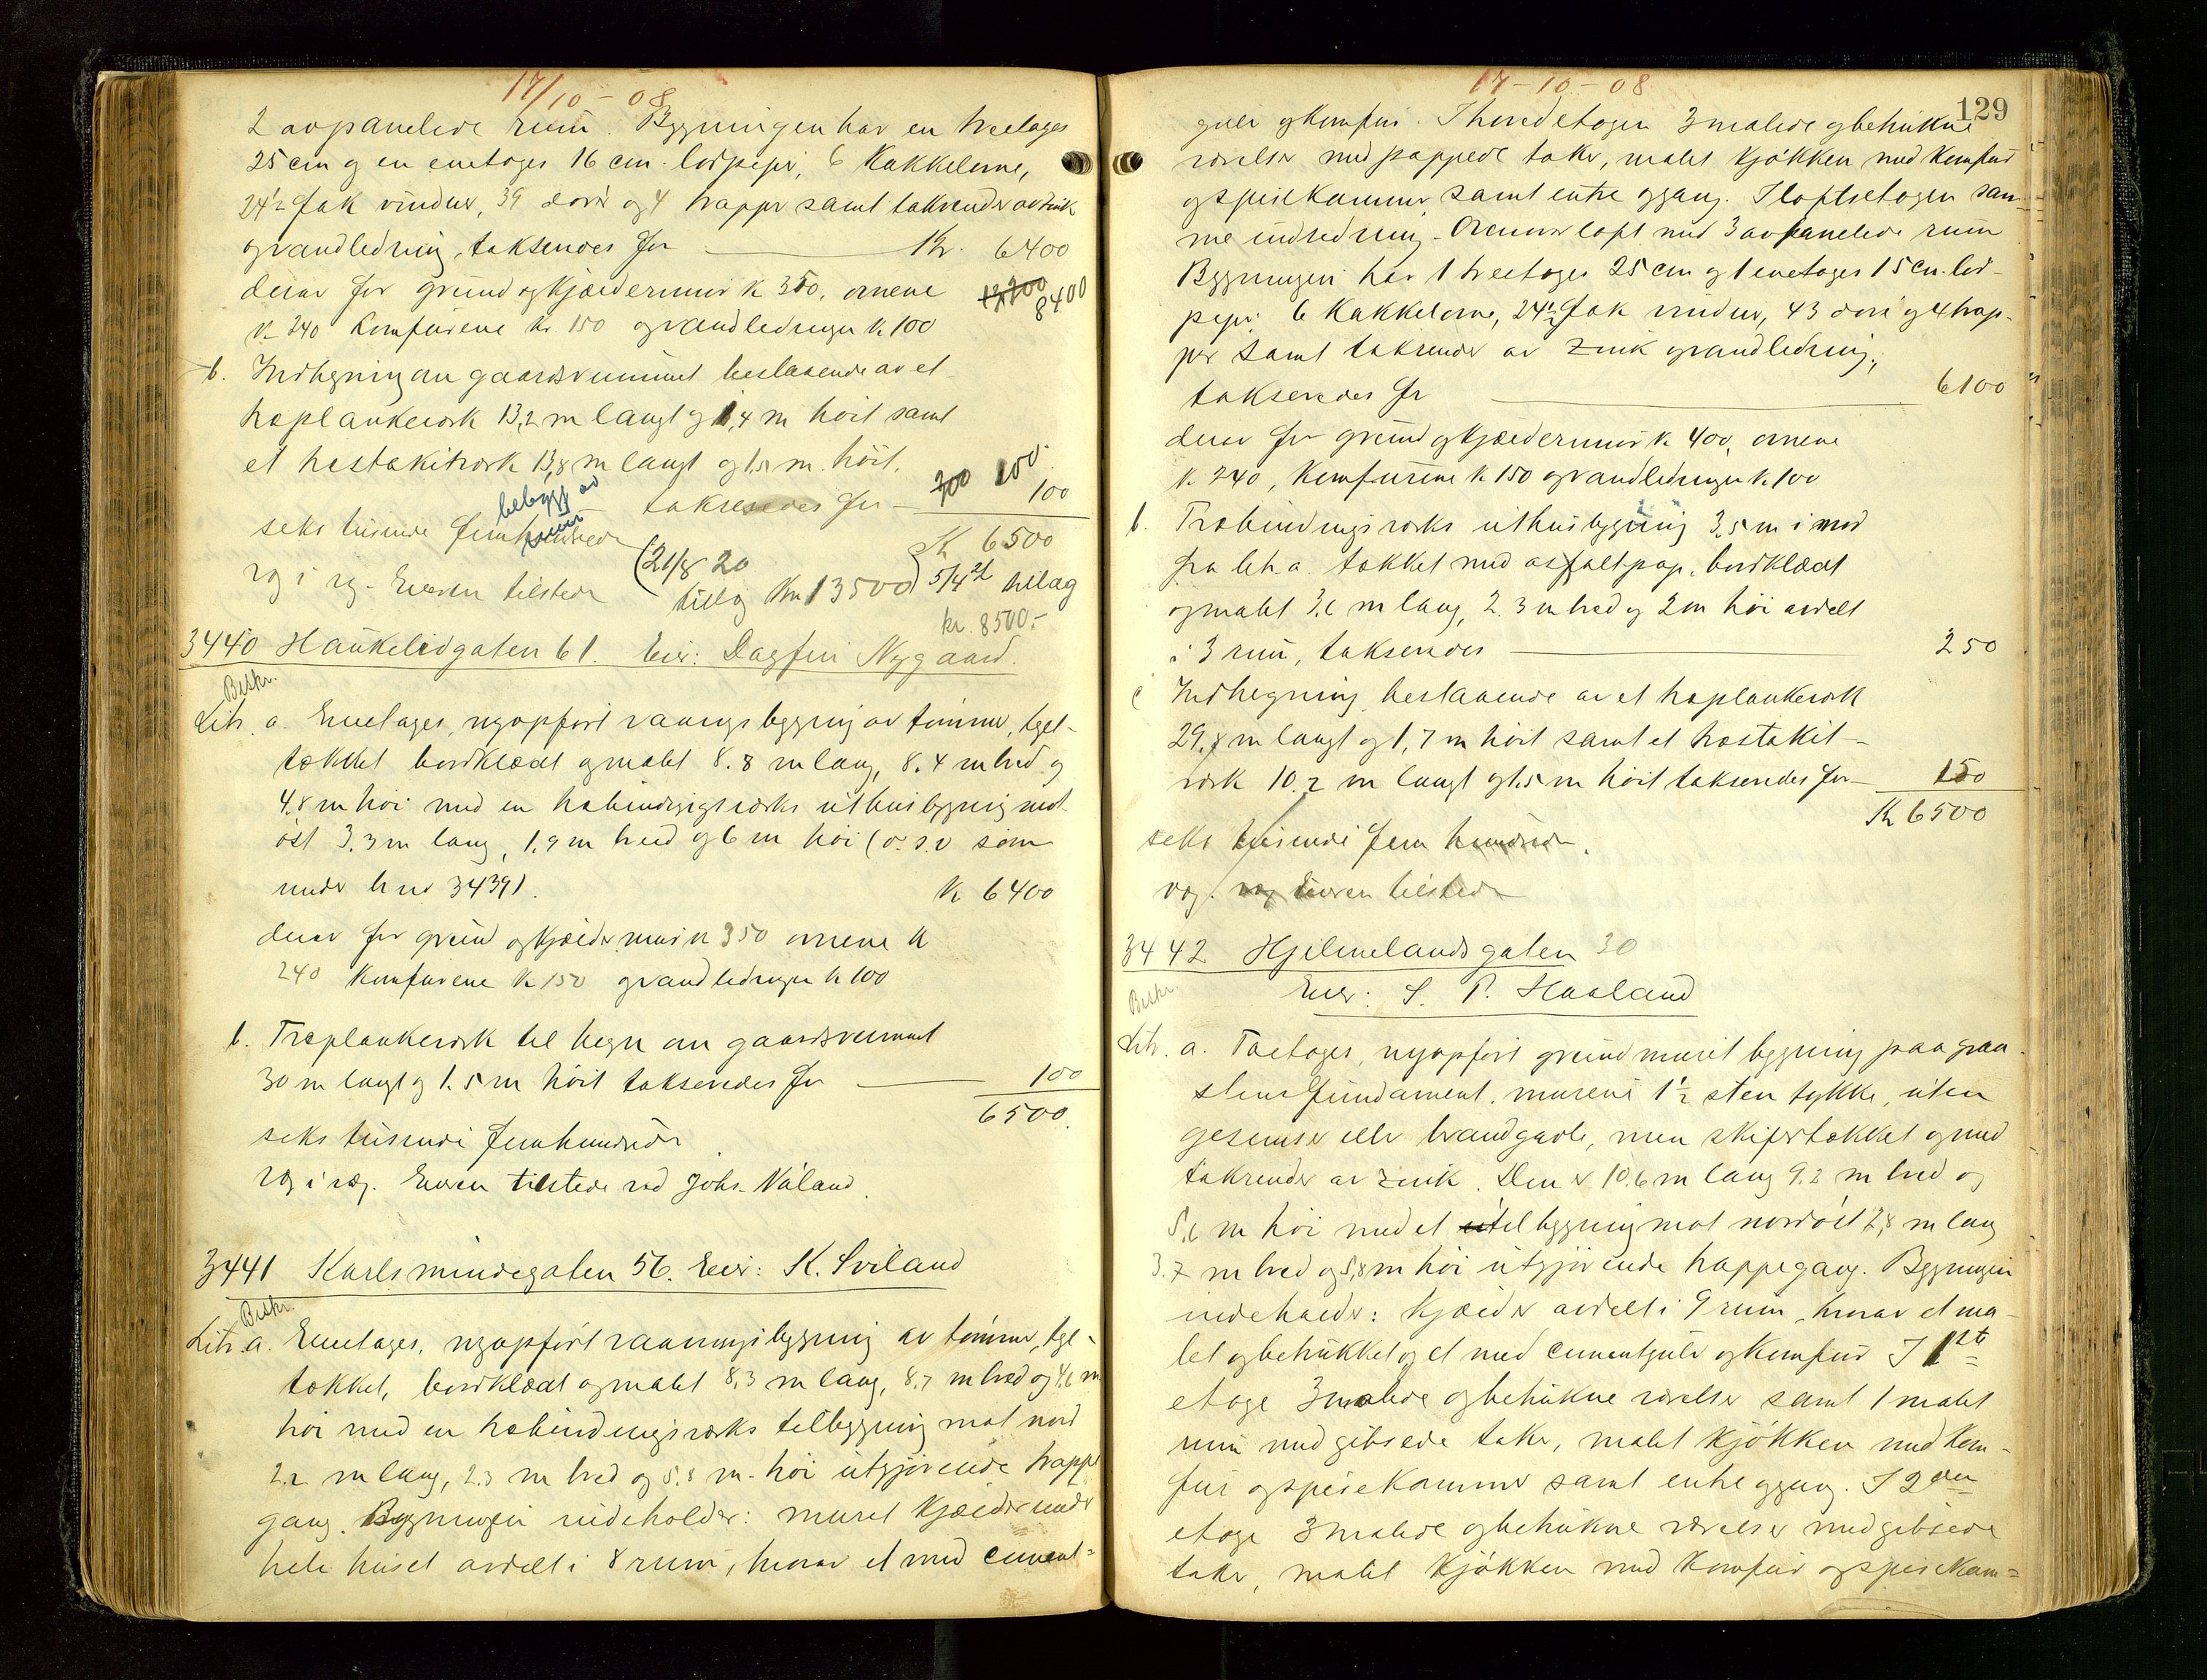 17/10-08
2 avpanelede rum. Bygningen har en treetages
25 cm og en enetages 16 cm. lodpipe, 6 Kakkelovne,
24½ fak vinduer, 39 döre og 4 trapper samt takrender av zink
og vandledning, takseredes for Kr. 6400
derav for grund og kjældermur K 350, ovnene 12200 8400
K 240 Komfurene Kr. 150 og vandledningen K 100
b. Indhegning om gaardsrummet bestaaende av et
træplankeværk 13,2 m langt og 1,4 m höit samt
et træstakitværk 13,8 m langt og 1,5 m. höit,
takseredes for 300 200 100
seks tusinde femhundrede K 6500
(21/8 20
tillæg Kr. 13500) 5/4 21 tillæg
vog i vog. Eieren tilstede
kr. 8500.-
3440 Haukelidgaten 61. Eier: Dagfin Nygaard.
Beskr.
Litr. a. Enetages, nyopfört vaaningsbygning av tömmer, tegl-
tækket bordklædt og malet 8.8 m lang, 8.4 m bred og
4.8 m höi med en træbindingsværks uthusbygning mot
öst 3.3 m lang, 1.9 m bred og 6 m höi (o.s.v som
under br no 3439). K 6400
derav for grund og kjældermur K 350 ovnene K
240 Komfurene K 150 og vandledningen K 100
b. Træplankeværk til hegn om gaardsrummet
30 m langt og 1.5 m höit takseredes for 100
6500.
seks tusinde femhundrede
vog i vog. Eieren tilstede ved Johs. Nåland.
3441 Karlsmindegaten 56. Eier: K. Sviland
Beskr.
Litr. a. Enetages, nyopfört vaaningsbygning av tömmer, tegl-
tækket, bordklædt og malet 8,3 m lang, 8.7 m bred og 4,6 m
höi med en træbindingsværks tilbygning mot nord
2.2 m lang, 2.3 m bred og 5.8 m. höi utgjörende trappe
gang. Bygningen indeholder: muret Kjælder under
hele huset avdelt i 8 rum, hvorav et med cement-
17-10-08
129
gulv og Komfur. I hovedetagen 3 malede og betrukne
værelser med pappede taker, malet Kjökken med Komfur
og spisekammer samt entre og gang. I loftsetagen sam-
me indredning. Ovenover loft med 3 avpanelede rum
Bygningen har 1 treetages 25 cm og 1 enetages 15 cm. lod-
pipe. 6 Kakkelovne, 24½ fak vinduer, 43 döre og 4 trap-
per samt takrender av zink og vandledning,
takseredes for 6100
derav for grund og kjældermur K 400, ovnene
K 240, Komfurene K 150 og vandledningen K 100
b. Træbindingsværks uthusbygning 3,5 m i nord
fra litr. a. tækket med asfaltpap, bordklædt
og malet 3,6 m lang, 2.3 m bred og 2 m höi avdelt
i 3 rum, takseredes 250
c Indhegning bestaaende av et træplankeværk
29,8 m langt og 1,7 m höit samt et træstakit-
værk 10.2 m langt og 1.5 m höit takseredes for 150
K 6500
seks tusinde fem hundrede.
vog. vog Eieren tilstede
3442 Hjelmelandsgaten 30
Eier: S. P. Haaland
Beskr.
Litr. a. Toetages, nyopfört grundmuret bygning paa graa-
stensfundament, murene 1½ sten tykke, uten
gesimser eller brandgavle, men skifertækket og med
takrender av zink. Den er 10.6 m lang 9.2 m bred og
5.6 m höi med et tilbygning mot nordöst 2,8 m lang
3.7 m bred og 5,8 m höi utgjörende trappegang. Bygningen
indeholder: Kjælder avdelt i 9 rum, hvorav et ma-
let og betrukket og et med cementgulv og Komfur I 1ste
etage 3 malede og betrukne værelser samt 1 malet
rum med gibsede taker, malet kjökken med Kom-
fur og spisekammer samt entre og gang. I 2den
etage 3 malede og betrukne værelser med gibsede
taker, malet kjökken med Komfur og spisekam-